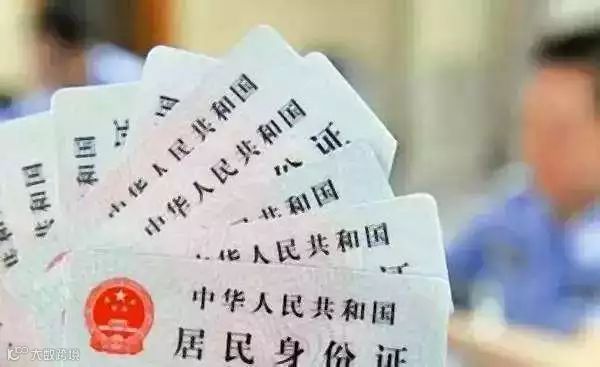 中华人民共和国
中华人民共和国
份证
民
共和国
共和国
共和国
中华人民共和国
中华人民共和国
居民身份证
大数跨境